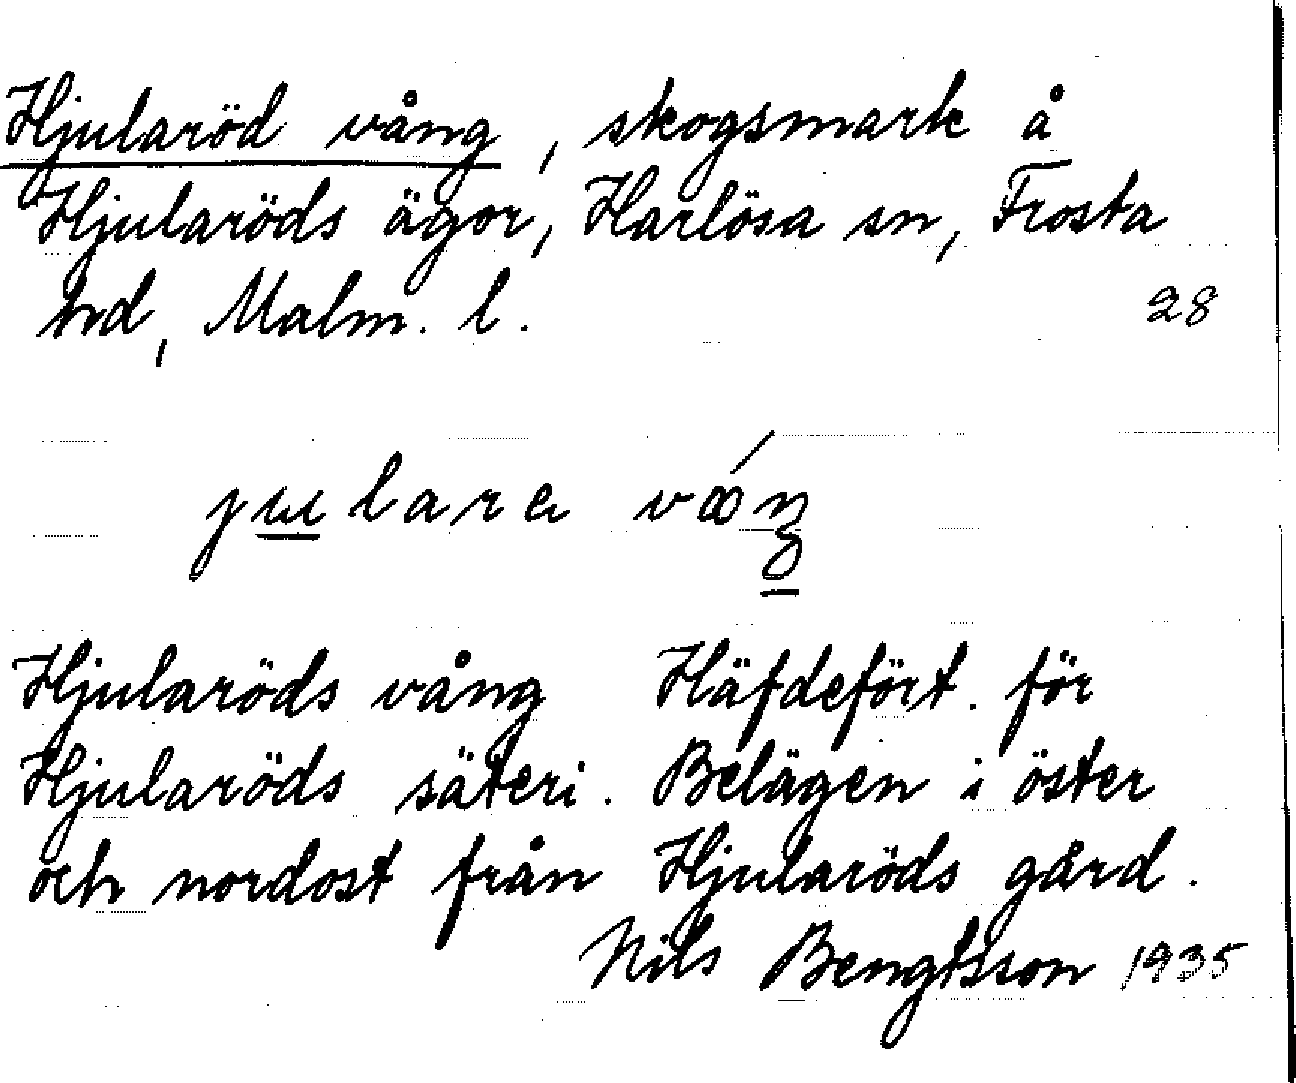 Hjularöd vång, skogsmark å
Hjularöds ägor, Harlösa sn, Frosta
hd, Malm. l. 28
Hjularöds vång Häfdefört. för
Hjularöds säteri. Belägen i öster
och nordost från Hjularöds gård.
Nils Bengtsson 1935